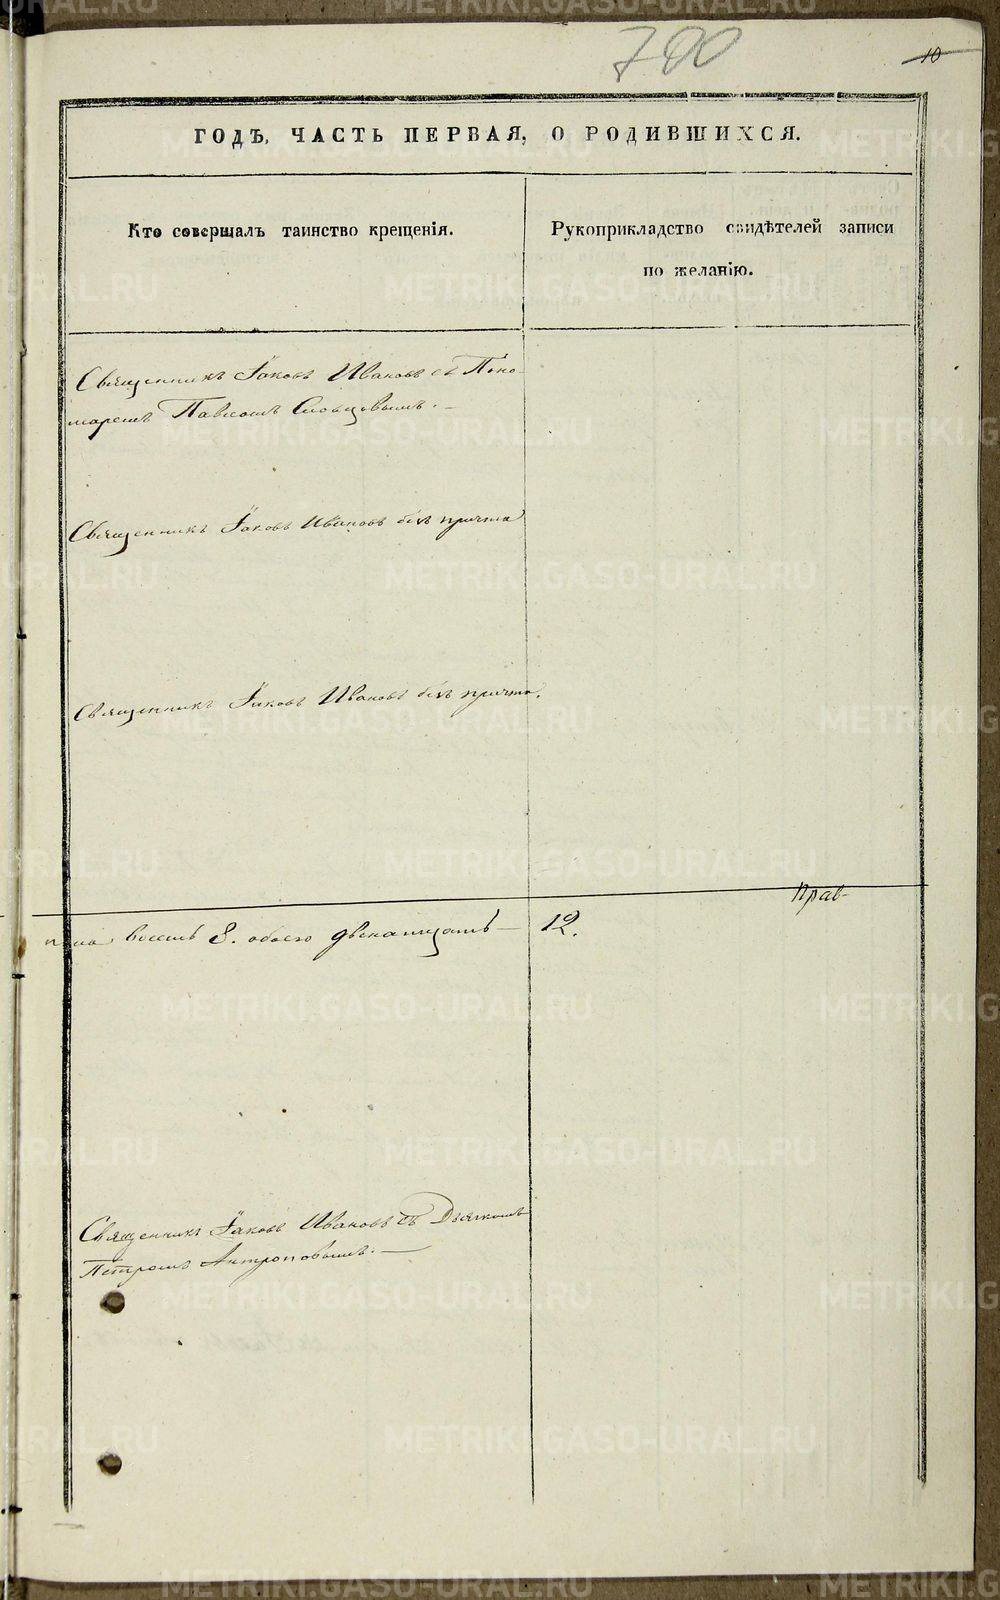 700
10
ГОДѢ, ЧАСТЬ ПЕРВАЯ, О РОДИВШИХСЯ.
Кто совершалъ таинство крещенія.
Рукоприкладство свидѣтелей записи
по желанію.
Священникъ Іаковъ Ивановъ съ Поно-
маремъ Павломъ Словцовымъ.
Священникъ Іаковъ Ивановъ безъ причта
Священникъ Іаковъ Ивановъ безъ причта.
Прав-
восемь 8. обоего двенатцать — 12.
Священникъ Іаковъ Ивановъ съ Дьячкомъ
Петромъ Антроповымъ. —
METRIKI.GASO-URAL.RU